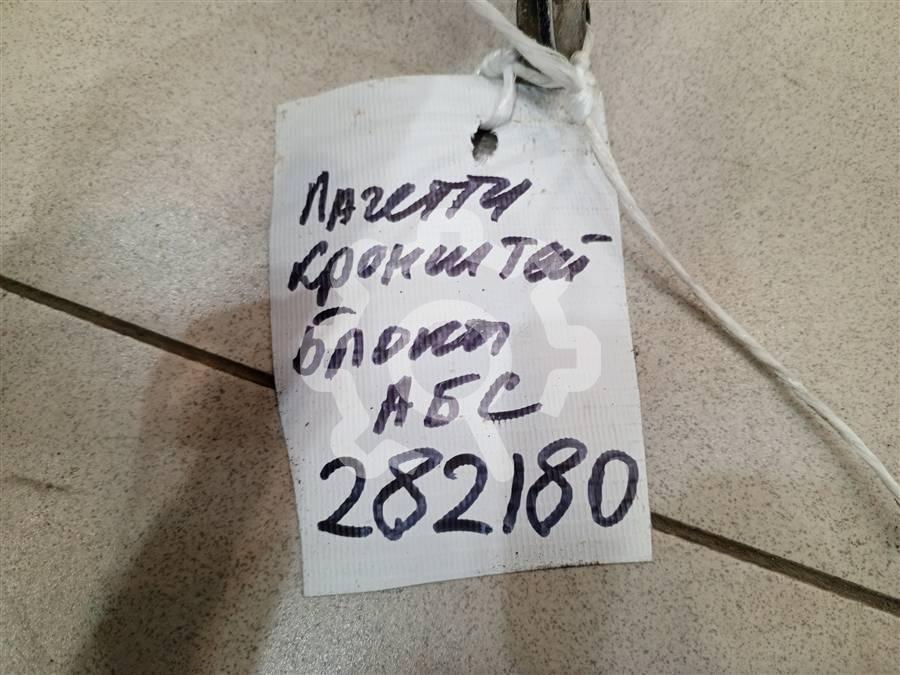 Лачетти
кронштей
блока
АБС
282180